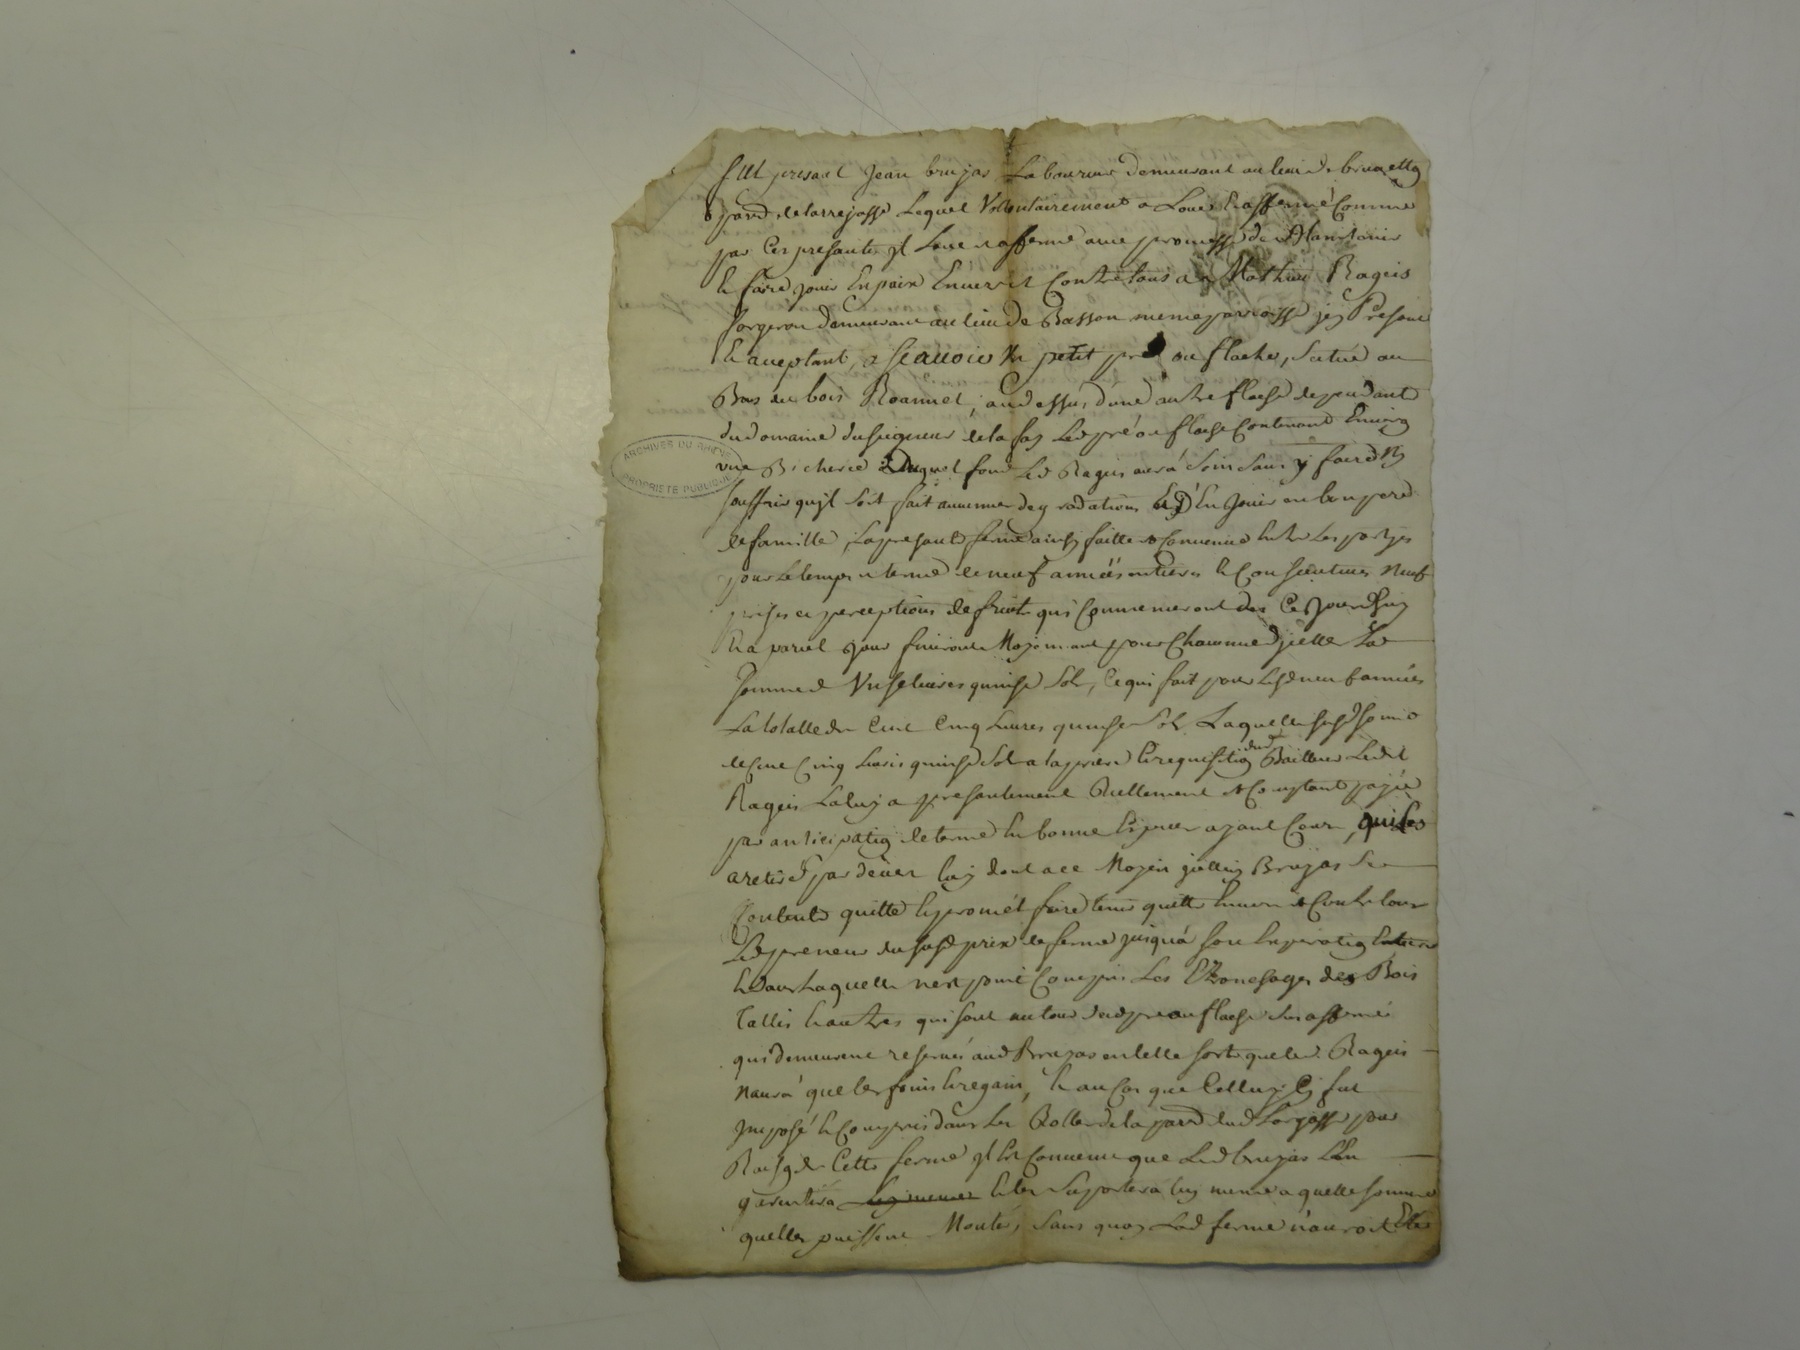 fut presant Jean brujas Laboureur demeurant au lieu de
parr de larrejasse Lequel Vollontairement a Loué et affermé Comme
par Ces presantes jl Loue et afferme avec promesse de Maintenir
et faire jouir En paix Envers et Contre tous a Mathieu Rageis
forgeron demeurant au lieu de Basson meme parroisse jcy Present
et aceptant, a scavoir Un petit pré ou flache, scitué au
Bas du bois Roannet, au dessus d'une autre flache dependant
du domaine du seigneur de la fay Led pré ou flache Contenant Environ
une Bicheree Duquel fond Led Rageis aura soin sans y faire Ny
souffrir qu'jl soit fait aucunne degradations Et D'En Jouir en bon pere
de famille, La presante ferme ainsy faitte et Convenue Entre Les partyes
pour Le temps et terme de neuf années entieres et Consecutives Neuf
prises et perceptions de fruits qui Commenceront des Ce Jourdhuy
Et a pareil jour finiront Moyenant pour Chacunne d'jcelle La
somme d' Unse livres quinse Sols, Ce qui fait pour Lesd neuf années
La totalle de Cent Cinq Livres quinse Sols Laquelle susd somme
de Cent Cinq Livres quinse Sols a la priere Et requisition dud Bailleur Ledit
Rageis La luy a presantement Reellement et Comptant payée
par anticipation de terme En bonne Especes ayant Cours, qui Les
a retiré par dever luy dont a ce Moyen jcelluy Brujas Se
Contente quitte Et promet faire tenir quitte Envers et Contre tous
Led preneur du susd prix de ferme jusqu'a son Expiration Entiere
et dans Laquelle n'est point Compris Les Ebronchages des Bois
Tallis et autres qui sont au tour dud pre ou flache sus affermé
qui demeurent reservés aud Brujas en telle sorte que led. Rageis
Naura que les foins Et regain, et au Cas que Celluy Cy fut
jmposé et Compris dans Les Rolles de la parr dud Larjasse pour
Raison de Cette ferme jl Est Convenu que Led brujas L'En
garentira luy meme et les suportera luy meme a quelle somme
quelles puissent Monter, Sans quoy Lad ferme n'auroit Eté
ARCHIVES DU RHÔNE
PROPRIÉTÉ PUBLIQUE